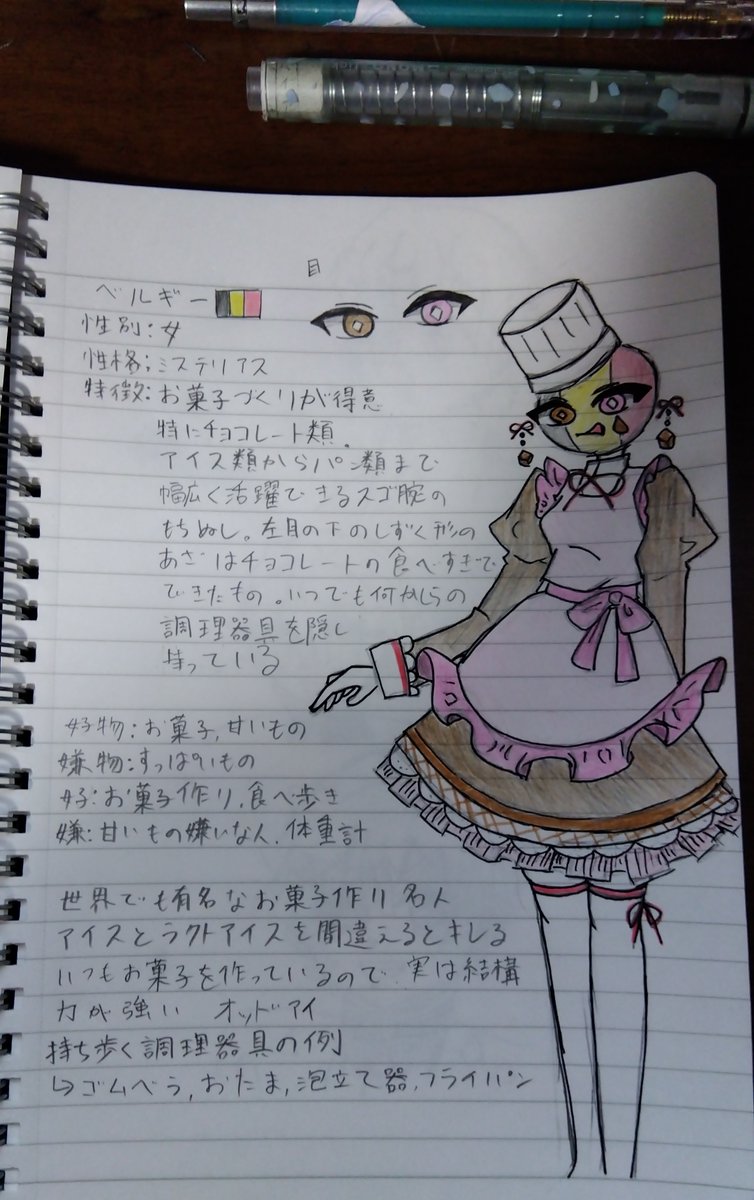 目
ベルギー
性別:女
性格:ミステリアス
特徴:お菓子づくりが得意
特にチョコレート類。
アイス類からパン類まで
幅広く活躍できるスゴ腕の
もちぬし。左目の下のしずく形の
あざはチョコレートの食べすぎで
できたもの。いつでも何かしらの
調理器具を隠し
持っている
好物:お菓子,甘いもの
嫌物:すっぱいもの
好:お菓子作り,食べ歩き
嫌:甘いもの嫌いな人,体重計
世界でも有名なお菓子作り名人
アイスとラクトアイスを間違えるとキレる
いつもお菓子を作っているので 実は結構
力が強い オッドアイ
持ち歩く調理器具の例
↳ゴムベラ,おたま,泡立て器,フライパン